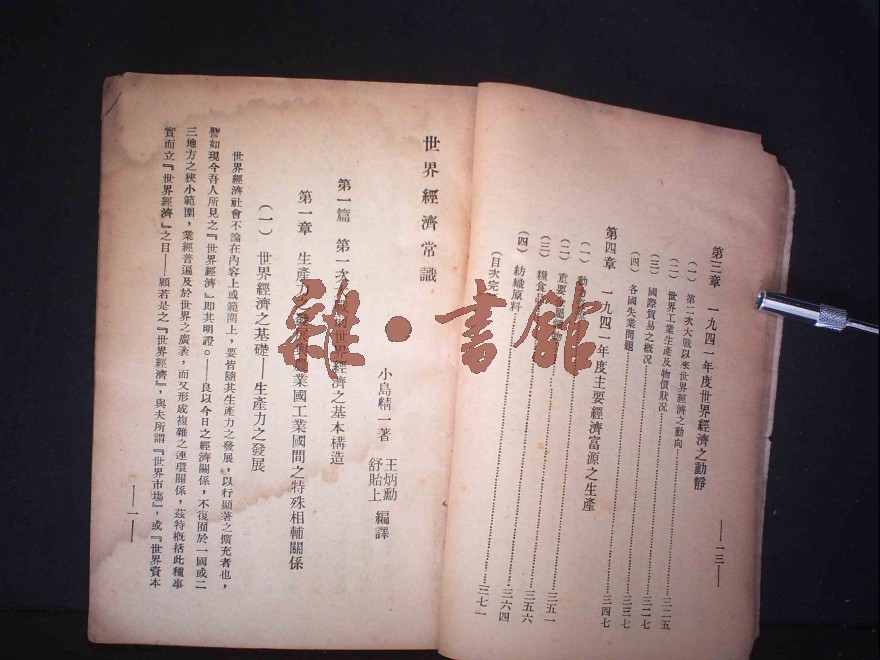 第三章　一九四一年度世界經濟之動靜
（一）第二次大戰以來世界經濟之動向………三二五
（二）世界工業生產及物價狀況………三二七
（三）國際貿易之概況………三三七
（四）各國失業問題………三四七
第四章　一九四一年度主要經濟富源之生產
（一）動
（二）重要金屬………三五一
（三）糧食………三五六
（四）紡織原料………三六四
（目次完）………三七一
—一三—
世界經濟常識
小島精一著
王炳勳
舒貽上 編譯
第一篇　第一次大戰前世界經濟之基本構造
第一章　生產力之發展與農業國工業國間之特殊相輔關係
（一）世界經濟之基礎——生產力之發展
世界經濟社會不論在內容上或範圍上，要皆隨其生產力之發展，以行顯著之擴充者也，
譬如現今吾人所見之『世界經濟』即其明證。——良以今日之經濟關係，不復囿於一國或二
三地方之狹小範圍，業經普遍及於世界之廣袤，而又形成複雜之連環關係，茲特概括此種事
實而立『世界經濟』之目——顧若是之『世界經濟』，與夫所謂『世界市場』，或『世界資本
—一—
雜·書館